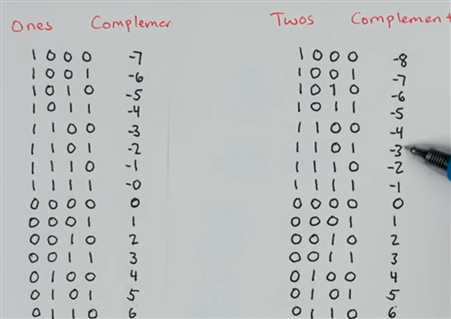 Ones Complemer
1 0 0 0 -7
1 0 0 1 -6
1 0 1 0 -5
1 0 1 1 -4
1 1 0 0 -3
1 1 0 1 -2
1 1 1 0 -1
1 1 1 1 -0
0 0 0 0 0
0 0 0 1 1
0 0 1 0 2
0 0 1 1 3
0 1 0 0 4
0 1 0 1 5
0 1 1 0 6
Twos Complement
1 0 0 0 -8
1 0 0 1 -7
1 0 1 0 -6
1 0 1 1 -5
1 1 0 0 -4
1 1 0 1 -3
1 1 1 0 -2
1 1 1 1 -1
0 0 0 0 0
0 0 0 1 1
0 0 1 0 2
0 0 1 1 3
0 1 0 0 4
0 1 0 1 5
0 1 1 0 6